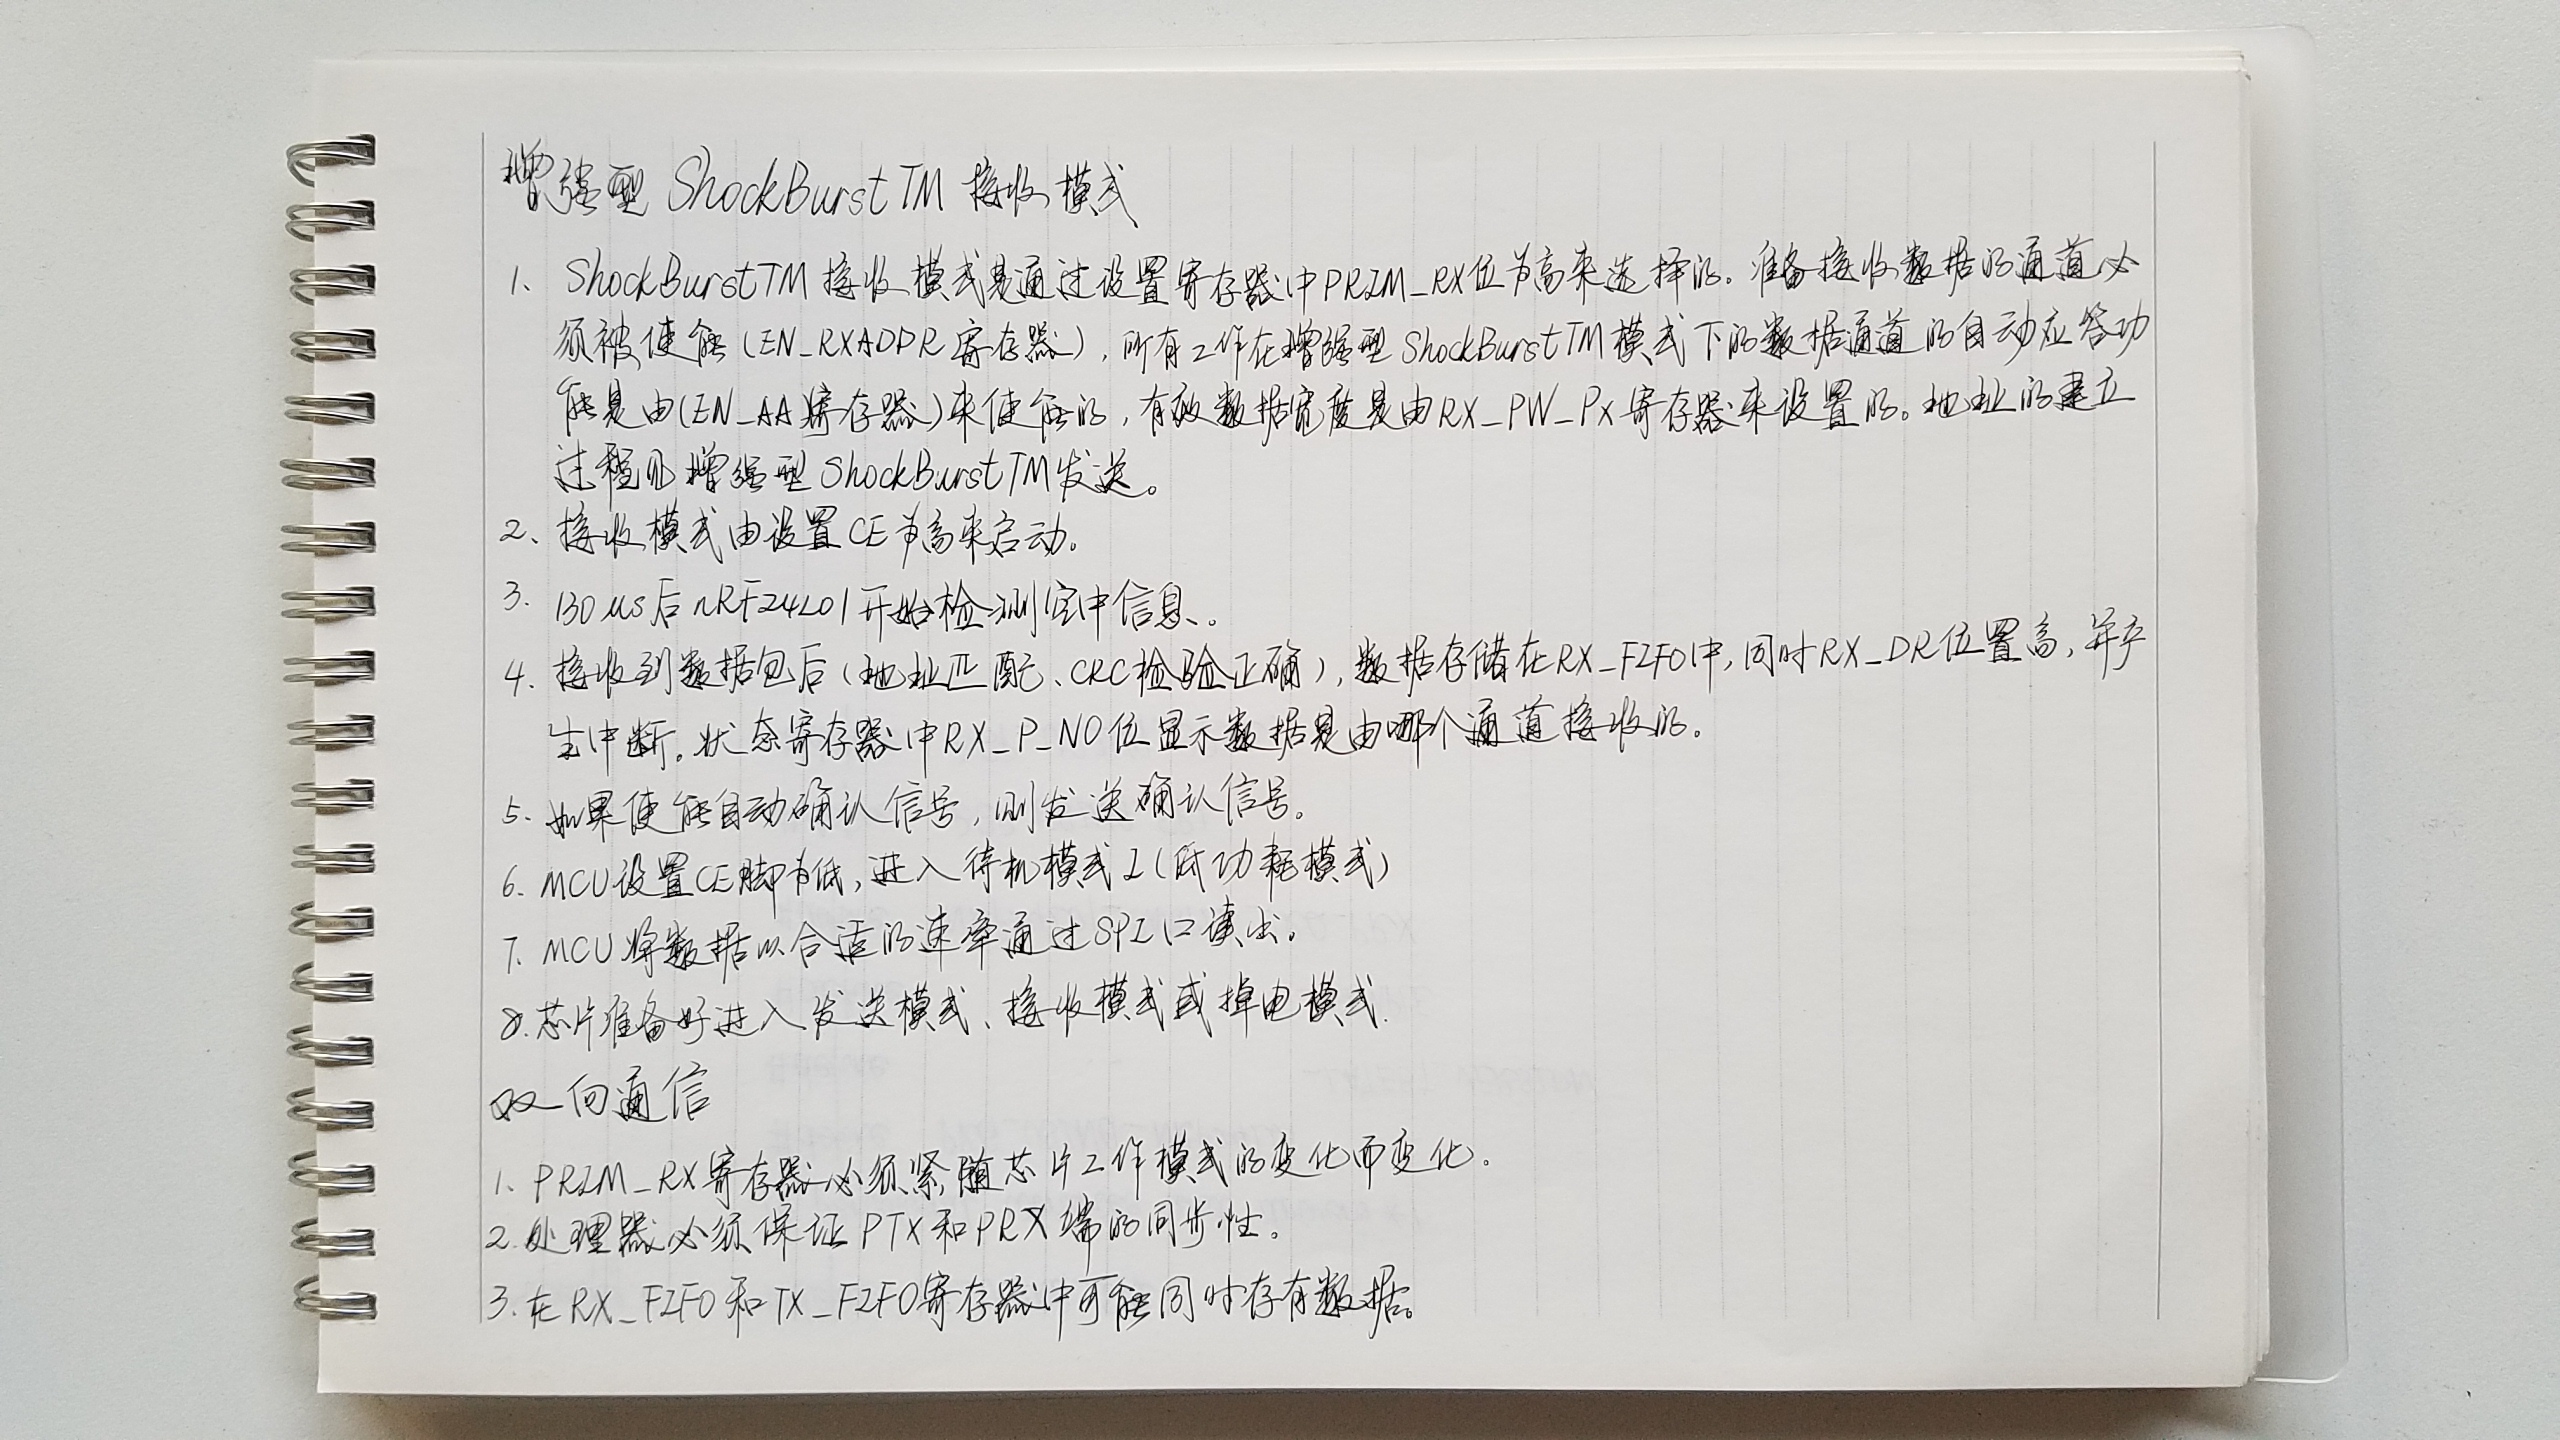 增强型 ShockBurstTM 接收模式
1、ShockBurstTM 接收模式是通过设置寄存器中PRIM_RX位为高来选择的。准备接收数据的通道必
须被使能(EN_RXADDR寄存器),所有工作在增强型ShockBurstTM模式下的数据通道的自动应答功
能是由(EN_AA寄存器)来使能的,有效数据宽度是由RX_PW_PX寄存器来设置的。地址的建立
过程见增强型ShockBurstTM发送。
2、接收模式由设置CE为高来启动。
3. 130us后nRF24L01开始检测空中信息。
4. 接收到数据包后(地址匹配、CRC检验正确),数据存储在RX_FIFO中,同时RX_DR位置高,并产
生中断。状态寄存器中RX_P_NO位显示数据是由哪个通道接收的。
5. 如果使能自动确认信号,则发送确认信号。
6. MCU设置CE脚为低,进入待机模式I(低功耗模式)
7. MCU将数据以合适的速率通过SPI口读出。
8.芯片准备好进入发送模式、接收模式或掉电模式.
双向通信
1. PRIM_RX寄存器必须紧随芯片工作模式的变化而变化.
2.处理器必须保证PTX和PRX端的同步性。
3.在RX_FIFO和TX_FIFO寄存器中可能同时存有数据。